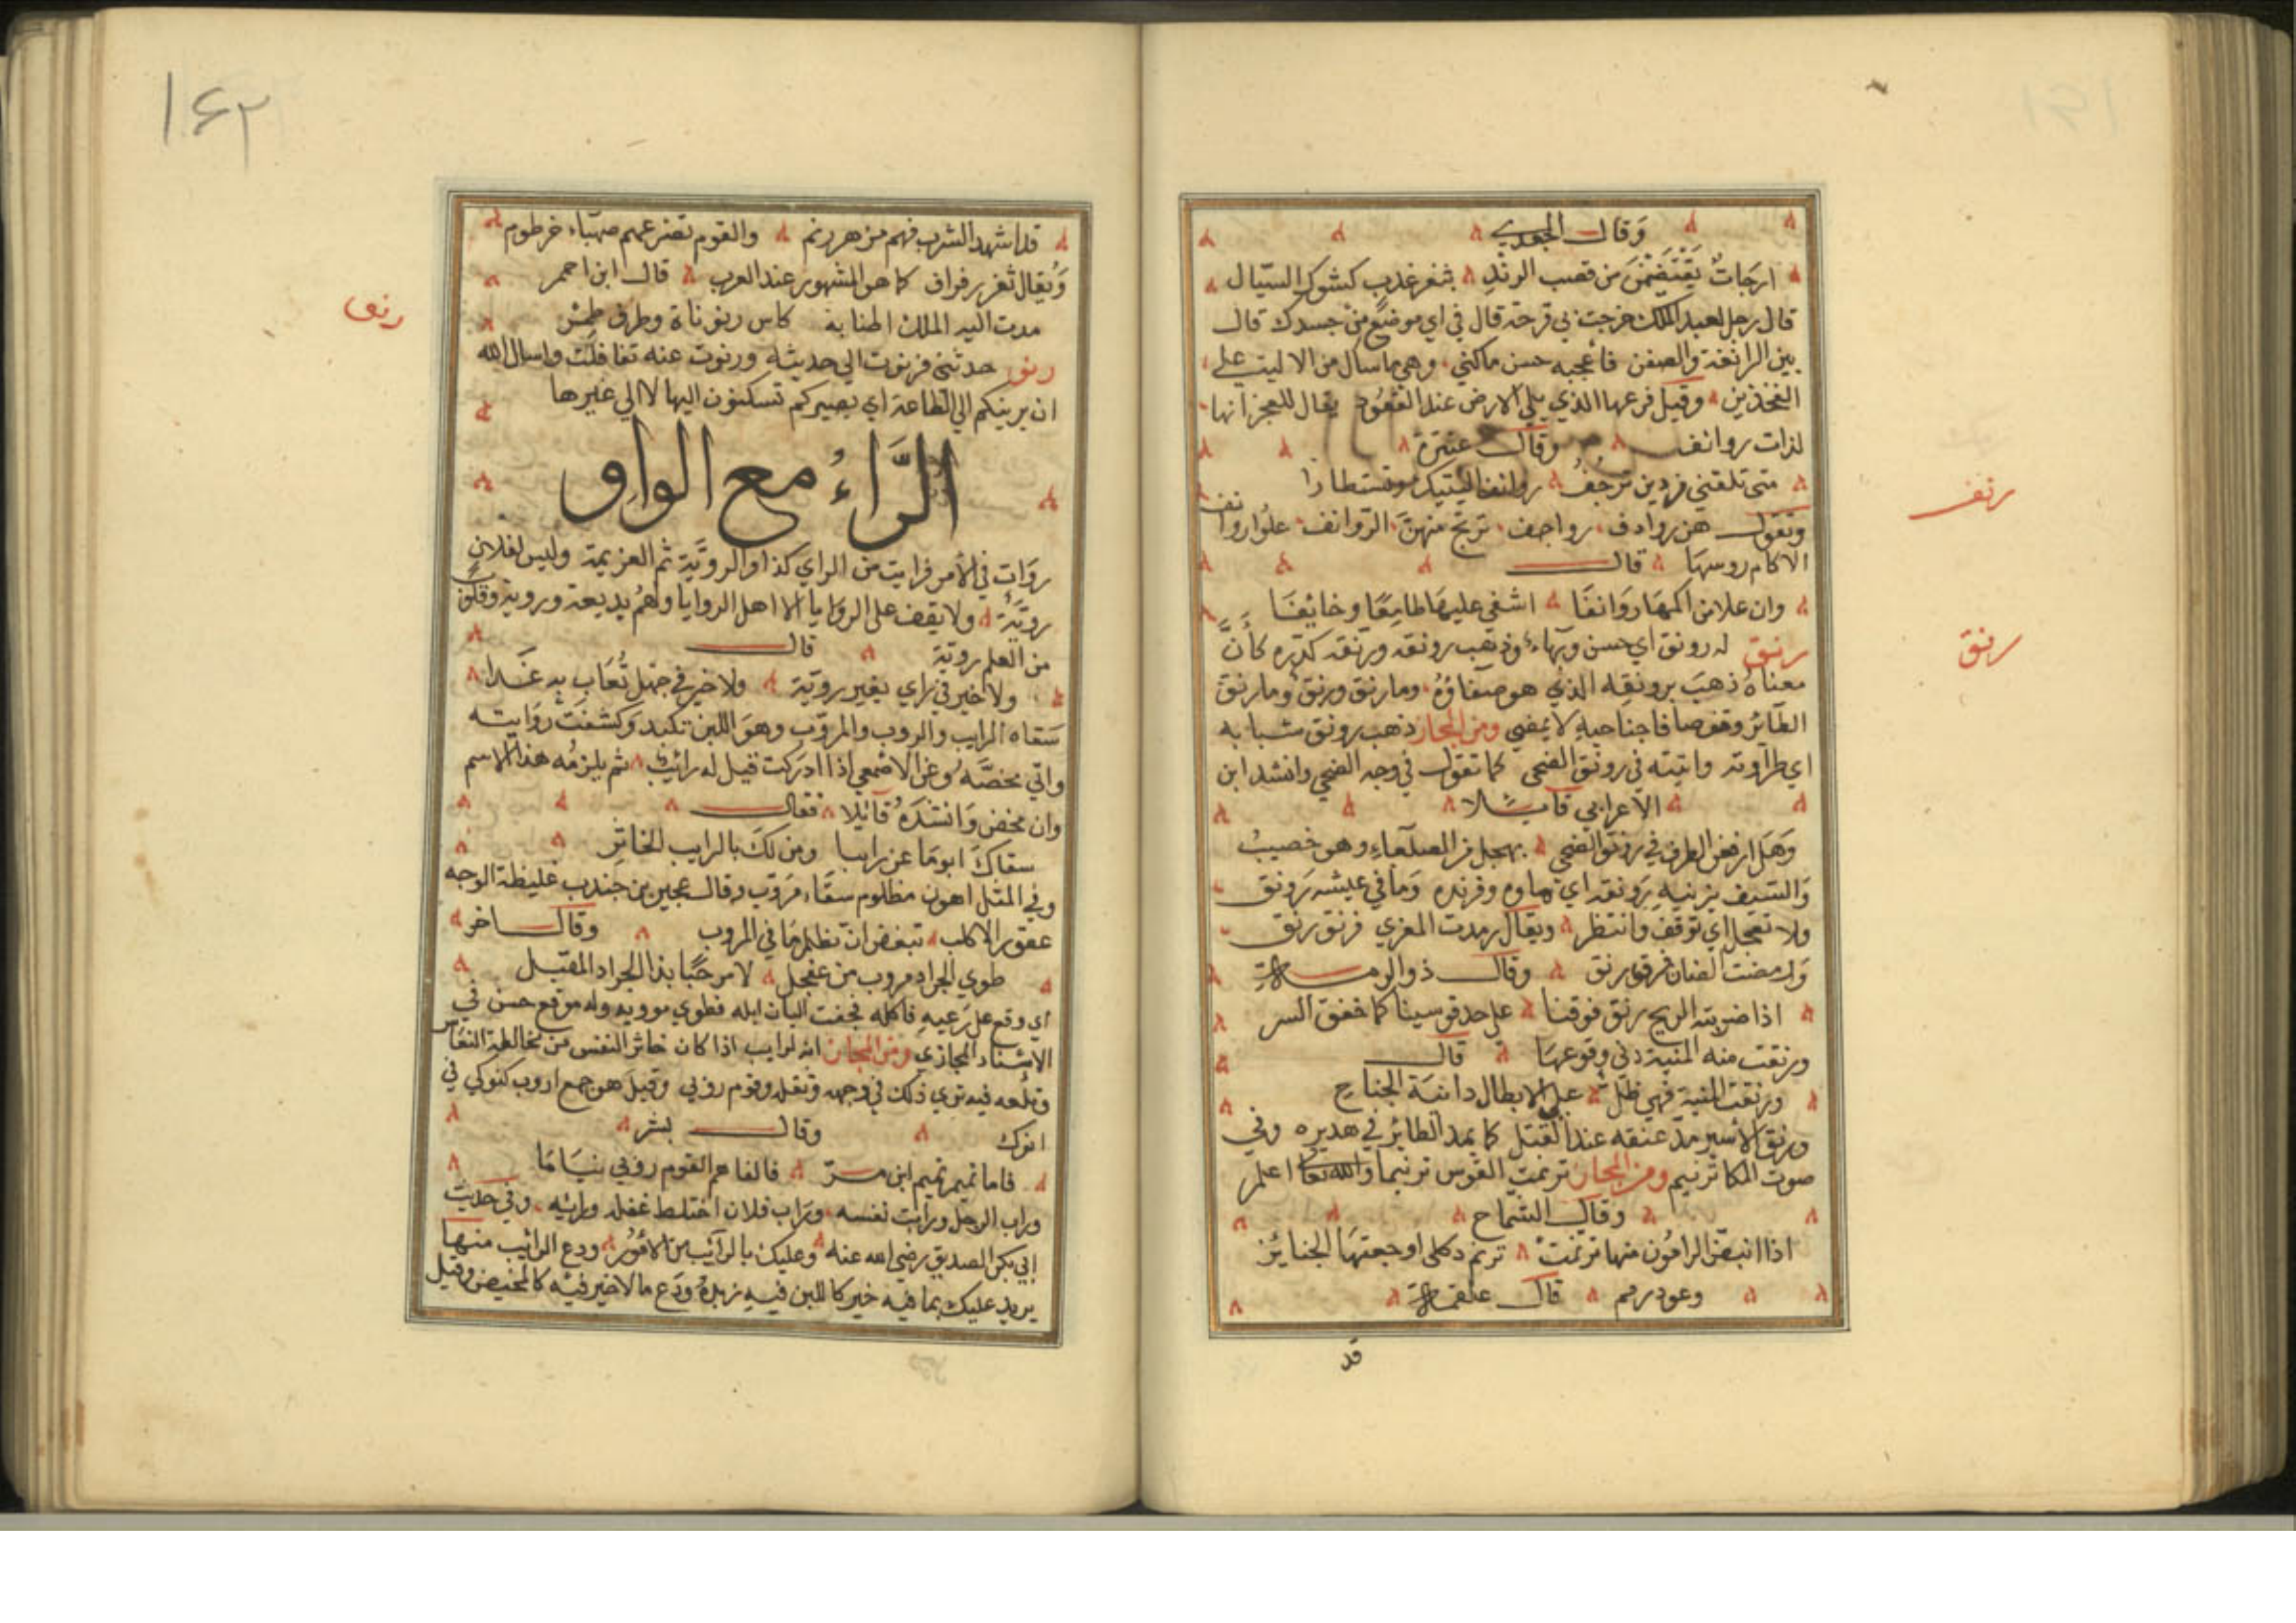 وقال الجعدي
ارجات يقتضمن من قصب الرند بثغر عذب كشوك السيال
قال رجل لعبد الملك خرجت بي قرحة قال في اي موضع من جسدك قال
بين الرانفة والصفن فاعجبه حسن ما كنى وهي ما سال من الالية على
الفخذين وقيل فرعها الذي يلي الارض عند القعود يقال للعجز انها
لذات روانف وقال عنترة
متى تلقني فردين ترجف روانف اليتيك وتستطارا
وتقول هن روادف رواجف ترتج منهن الروانف علوا روانف
الاكام روسها قال
وان علا من اكمها روانفا اشفى عليها طامعا وخائفا
رنق له رونق اي حسن وبهاء وذهب رونقه ورنقه كدره كأن
معناه ذهب برونقه الذي هو صفاؤه وما رنق ورنق وما رنق
الطائر وقف صافا جناحيه لا يمضي ومن المجاز ذهب رونق شبابه
اي طراوته واتيته في رونق الضحى كما تقول في وجه الضحى وانشد ابن
الاعرابي
وهل ارفعن الطرف في رونق الضحى بهجل من الصلعاء وهو خصيب
والسيف يزينه رونقه اي ماوه وفرنده وما في عيشه رونق
ولا تعجل اي توقف وانتظر ويقال رمدت المعزي فرنق رنق
وقال ذو الرمة
اذا ضربته الريح رنق فوقنا على حد قوسينا كما خفق النسر
ورنقت منه المنية دنى وقوعها قال
ورنقت المنية فهي ظل على الابطال دانية الجناح
ورنق الاسير مد عنقه عند القتل كما يمد الطائر في هديره وفي
صوت المكا ترنيم ومن المجاز ترنمت القوس ترنيما والله تعالى اعلم
وقال الشماخ
اذا انبض الرامون منها ترنمت ترنم ثكلى اوجعتها الجنائز
وعود رنم قال علقمة
قد
رنف
رنق
١٦٢
قد اشهد الشرب فهم مزهر رنم والقوم تصرعهم صهباء خرطوم
ويقال ثغر رفراف كما هو المشهور عند العرب قال ابن احمر
مدت اليه الملك اطنابه كاس رنوناة وطرف طمر
رنو حدثني فرنوت الى حديثه ورنوت عنه تغافلت واسال الله
ان يرنيكم الى الطاعة اي يصيركم تسكنون اليها لا الى غيرها
الراء مع الواو
روأت في الامر فرايت من الراي كذا والروية ثم العزيمة وليس لفلان
روية ولا يقف على الروايا الا اهل الروايا ولهم بديهة وروية
من العلم روية قال
ولا خير في راي بغير روية ولا خير في جهل تعاب به غدا
سقاه الرايب والروب والمروب وهو اللبن
وعن الاصمعي اذا ادركت قيل له رائب ثم يلزمه هذا الاسم
وان مخض وانشده قائلا فقال
سقاك ابو ماعز رايبا ومن لك بالرايب الخاثر
وفي المثل اهون مظلوم سقاء مروب وقال بن جندب غليظة الوجه
عقور الاكلب تبغض ان تظلم ما في المروب وقال اخر
طوي الجراد مروب من عفجل لا مرحبا بذا الجراد المقبل
اي وقع على رعيه فاكله فجفت البان ابله فطوي وله موقع حسن في
الاسناد المجازي ومن المجاز انه لرايب اذا كان خاثر النفس من مخالطة النعاس
فيه ترى ذلك في وجهه وثقله وقوم روبى وقيل هو جمع اروب كنوكى في
انوك وقال بشر
فاما تميم تميم ابن مر فالفاهم القوم روبى نياما
وراب الرجل ورابت نفسه وراب فلان اختلط عقله ورايه وفي حديث
ابي بكر الصديق رضي الله عنه وعليك بالرائب من الامور ودع الرائب منها
يريد عليك بما فيه خير كاللبن فيه زبده ودع ما لا خير فيه كالمخيض وقيل